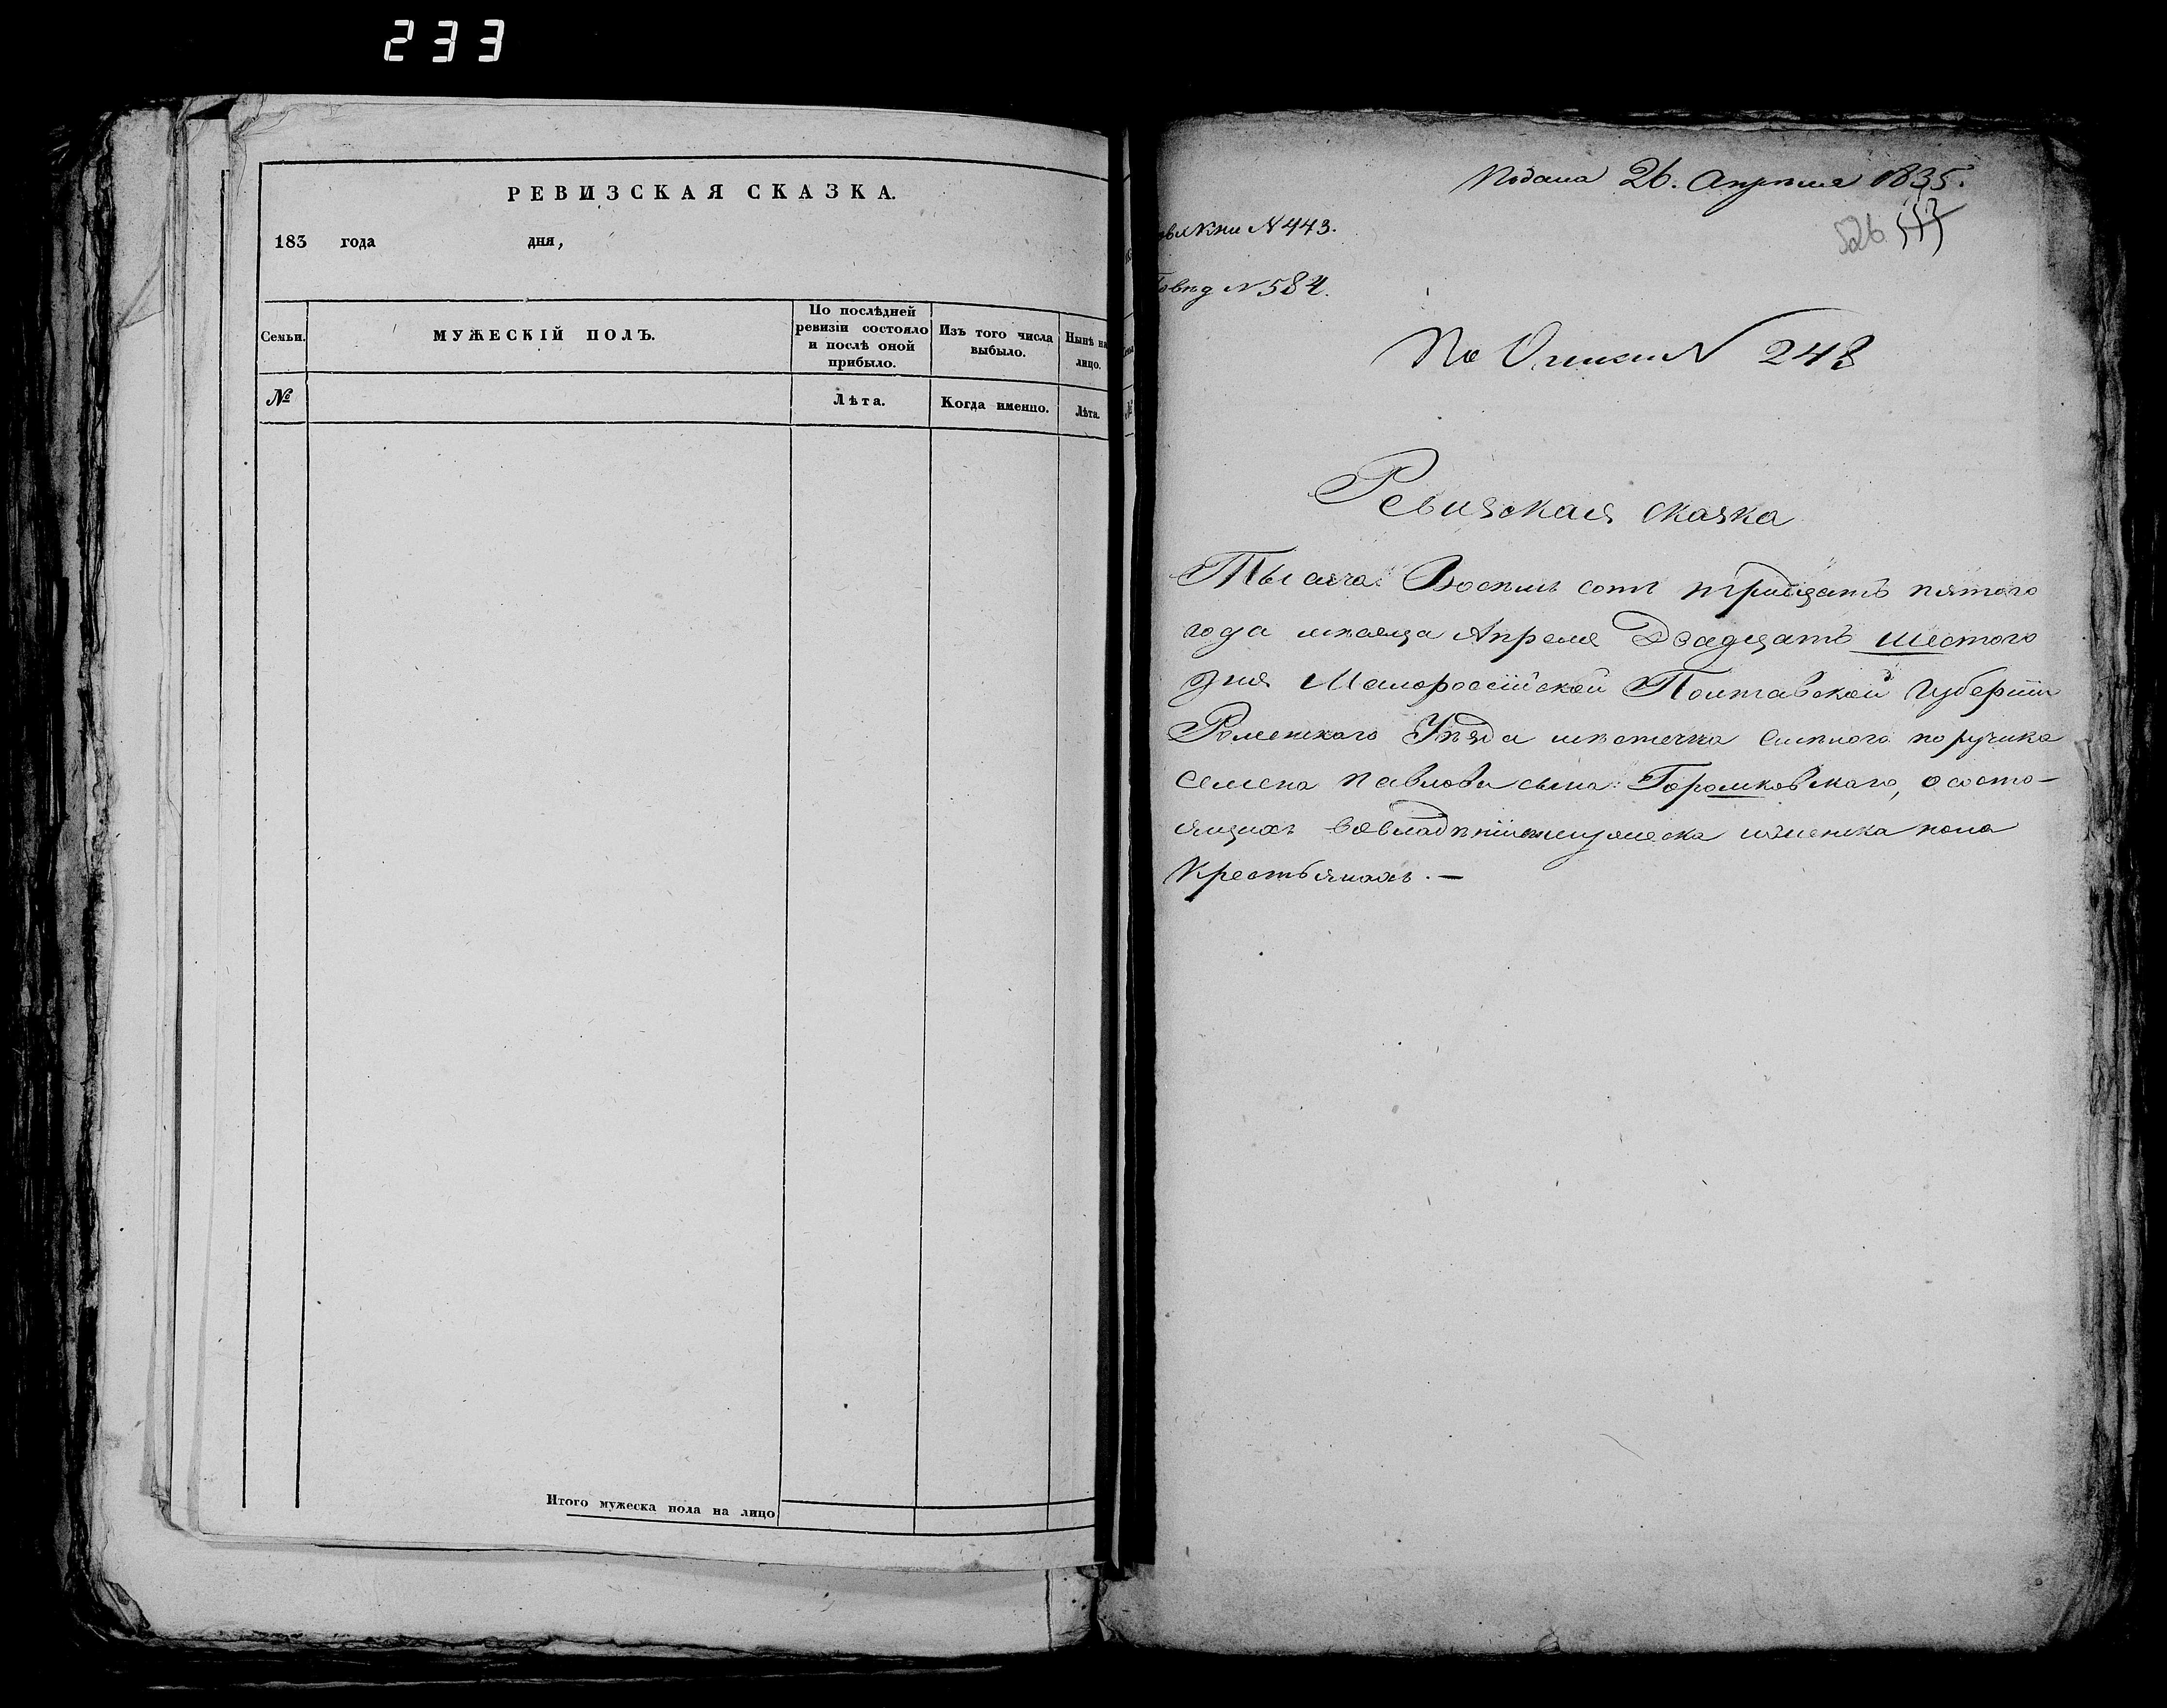 233
РЕВИЗСКАЯ СКАЗКА.
183 года дня,
Семьи.
МУЖЕСКІЙ ПОЛЪ.
По послѣдней ревизіи состояло и послѣ оной прибыло.
Изъ того числа выбыло.
Нынѣ на лицо.
№
Лѣта.
Когда именно.
Лѣта.
Итого мужеска пола на лицо
Подана 26. Апрѣля 1835.
526
N 443.
N 584.
По Описи N 248
Ревизская сказка
Тысяча Восемь сотъ тридцать пятого
года мѣсяца Апреля Двадцать шестого
дня Малороссійской Полтавской Губерніи
Роменского Уѣзда мѣстечка Смѣлого поручика
Семена Павлова сына Горошковского, о состо-
ящихъ во владѣніи мужеска и женска пола
Крестьянахъ. —